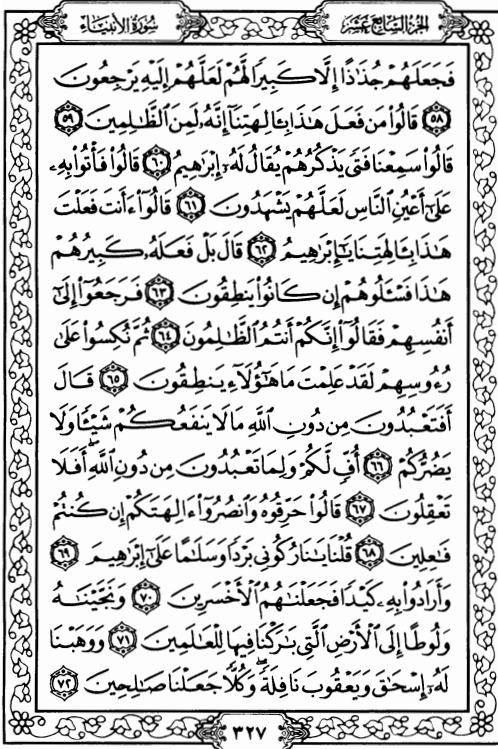 الجزء السابع عشر
سورة الأنبياء
فَجَعَلَهُمْ جُذَٰذًا إِلَّا كَبِيرًا لَّهُمْ لَعَلَّهُمْ إِلَيْهِ يَرْجِعُونَ
۝٥٨ قَالُوا۟ مَن فَعَلَ هَٰذَا بِـَٔالِهَتِنَآ إِنَّهُۥ لَمِنَ ٱلظَّٰلِمِينَ ۝٥٩
قَالُوا۟ سَمِعْنَا فَتًى يَذْكُرُهُمْ يُقَالُ لَهُۥٓ إِبْرَٰهِيمُ ۝٦٠ قَالُوا۟ فَأْتُوا۟ بِهِۦ
عَلَىٰٓ أَعْيُنِ ٱلنَّاسِ لَعَلَّهُمْ يَشْهَدُونَ ۝٦١ قَالُوٓا۟ ءَأَنتَ فَعَلْتَ
هَٰذَا بِـَٔالِهَتِنَا يَٰٓإِبْرَٰهِيمُ ۝٦٢ قَالَ بَلْ فَعَلَهُۥ كَبِيرُهُمْ
هَٰذَا فَسْـَٔلُوهُمْ إِن كَانُوا۟ يَنطِقُونَ ۝٦٣ فَرَجَعُوٓا۟ إِلَىٰٓ
أَنفُسِهِمْ فَقَالُوٓا۟ إِنَّكُمْ أَنتُمُ ٱلظَّٰلِمُونَ ۝٦٤ ثُمَّ نُكِسُوا۟ عَلَىٰ
رُءُوسِهِمْ لَقَدْ عَلِمْتَ مَا هَٰٓؤُلَآءِ يَنطِقُونَ ۝٦٥ قَالَ
أَفَتَعْبُدُونَ مِن دُونِ ٱللَّهِ مَا لَا يَنفَعُكُمْ شَيْـًٔا وَلَا
يَضُرُّكُمْ ۝٦٦ أُفٍّ لَّكُمْ وَلِمَا تَعْبُدُونَ مِن دُونِ ٱللَّهِ ۖ أَفَلَا
تَعْقِلُونَ ۝٦٧ قَالُوا۟ حَرِّقُوهُ وَٱنصُرُوٓا۟ ءَالِهَتَكُمْ إِن كُنتُمْ
فَٰعِلِينَ ۝٦٨ قُلْنَا يَٰنَارُ كُونِى بَرْدًا وَسَلَٰمًا عَلَىٰٓ إِبْرَٰهِيمَ ۝٦٩
وَأَرَادُوا۟ بِهِۦ كَيْدًا فَجَعَلْنَٰهُمُ ٱلْأَخْسَرِينَ ۝٧٠ وَنَجَّيْنَٰهُ
وَلُوطًا إِلَى ٱلْأَرْضِ ٱلَّتِى بَٰرَكْنَا فِيهَا لِلْعَٰلَمِينَ ۝٧١ وَوَهَبْنَا
لَهُۥٓ إِسْحَٰقَ وَيَعْقُوبَ نَافِلَةً ۖ وَكُلًّا جَعَلْنَا صَٰلِحِينَ ۝٧٢
٣٢٧